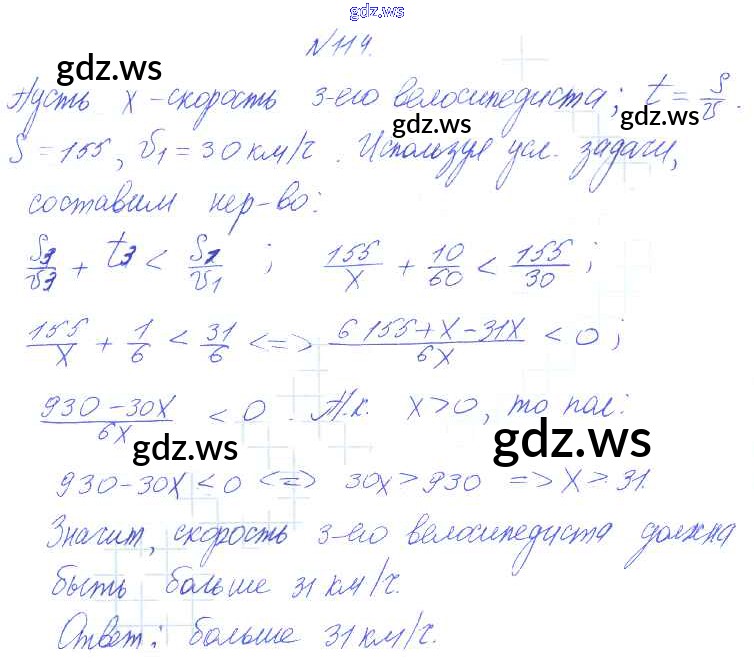 gdz.ws
N119.
gdz.ws
Пусть x - скорость 3-его велосипедиста; t = S/v.
gdz.ws
gdz.ws
S = 155, v1 = 30 км/ч. Используя усл. задачи,
составим нер-во:
S3/v3 + t3 < S1/v1 ; 155/x + 10/60 < 155/30 ;
155/x + 1/6 < 31/6 <=> 6 155+x-31x/6x < 0 ;
930-30x/6x < 0. Т.к. x>0, то пол:
gdz.ws
gdz.ws
930-30x<0 <=> 30x>930 => x > 31.
Значит, скорость 3-его велосипедиста должна
быть больше 31 км/ч.
Ответ: больше 31 км/ч.